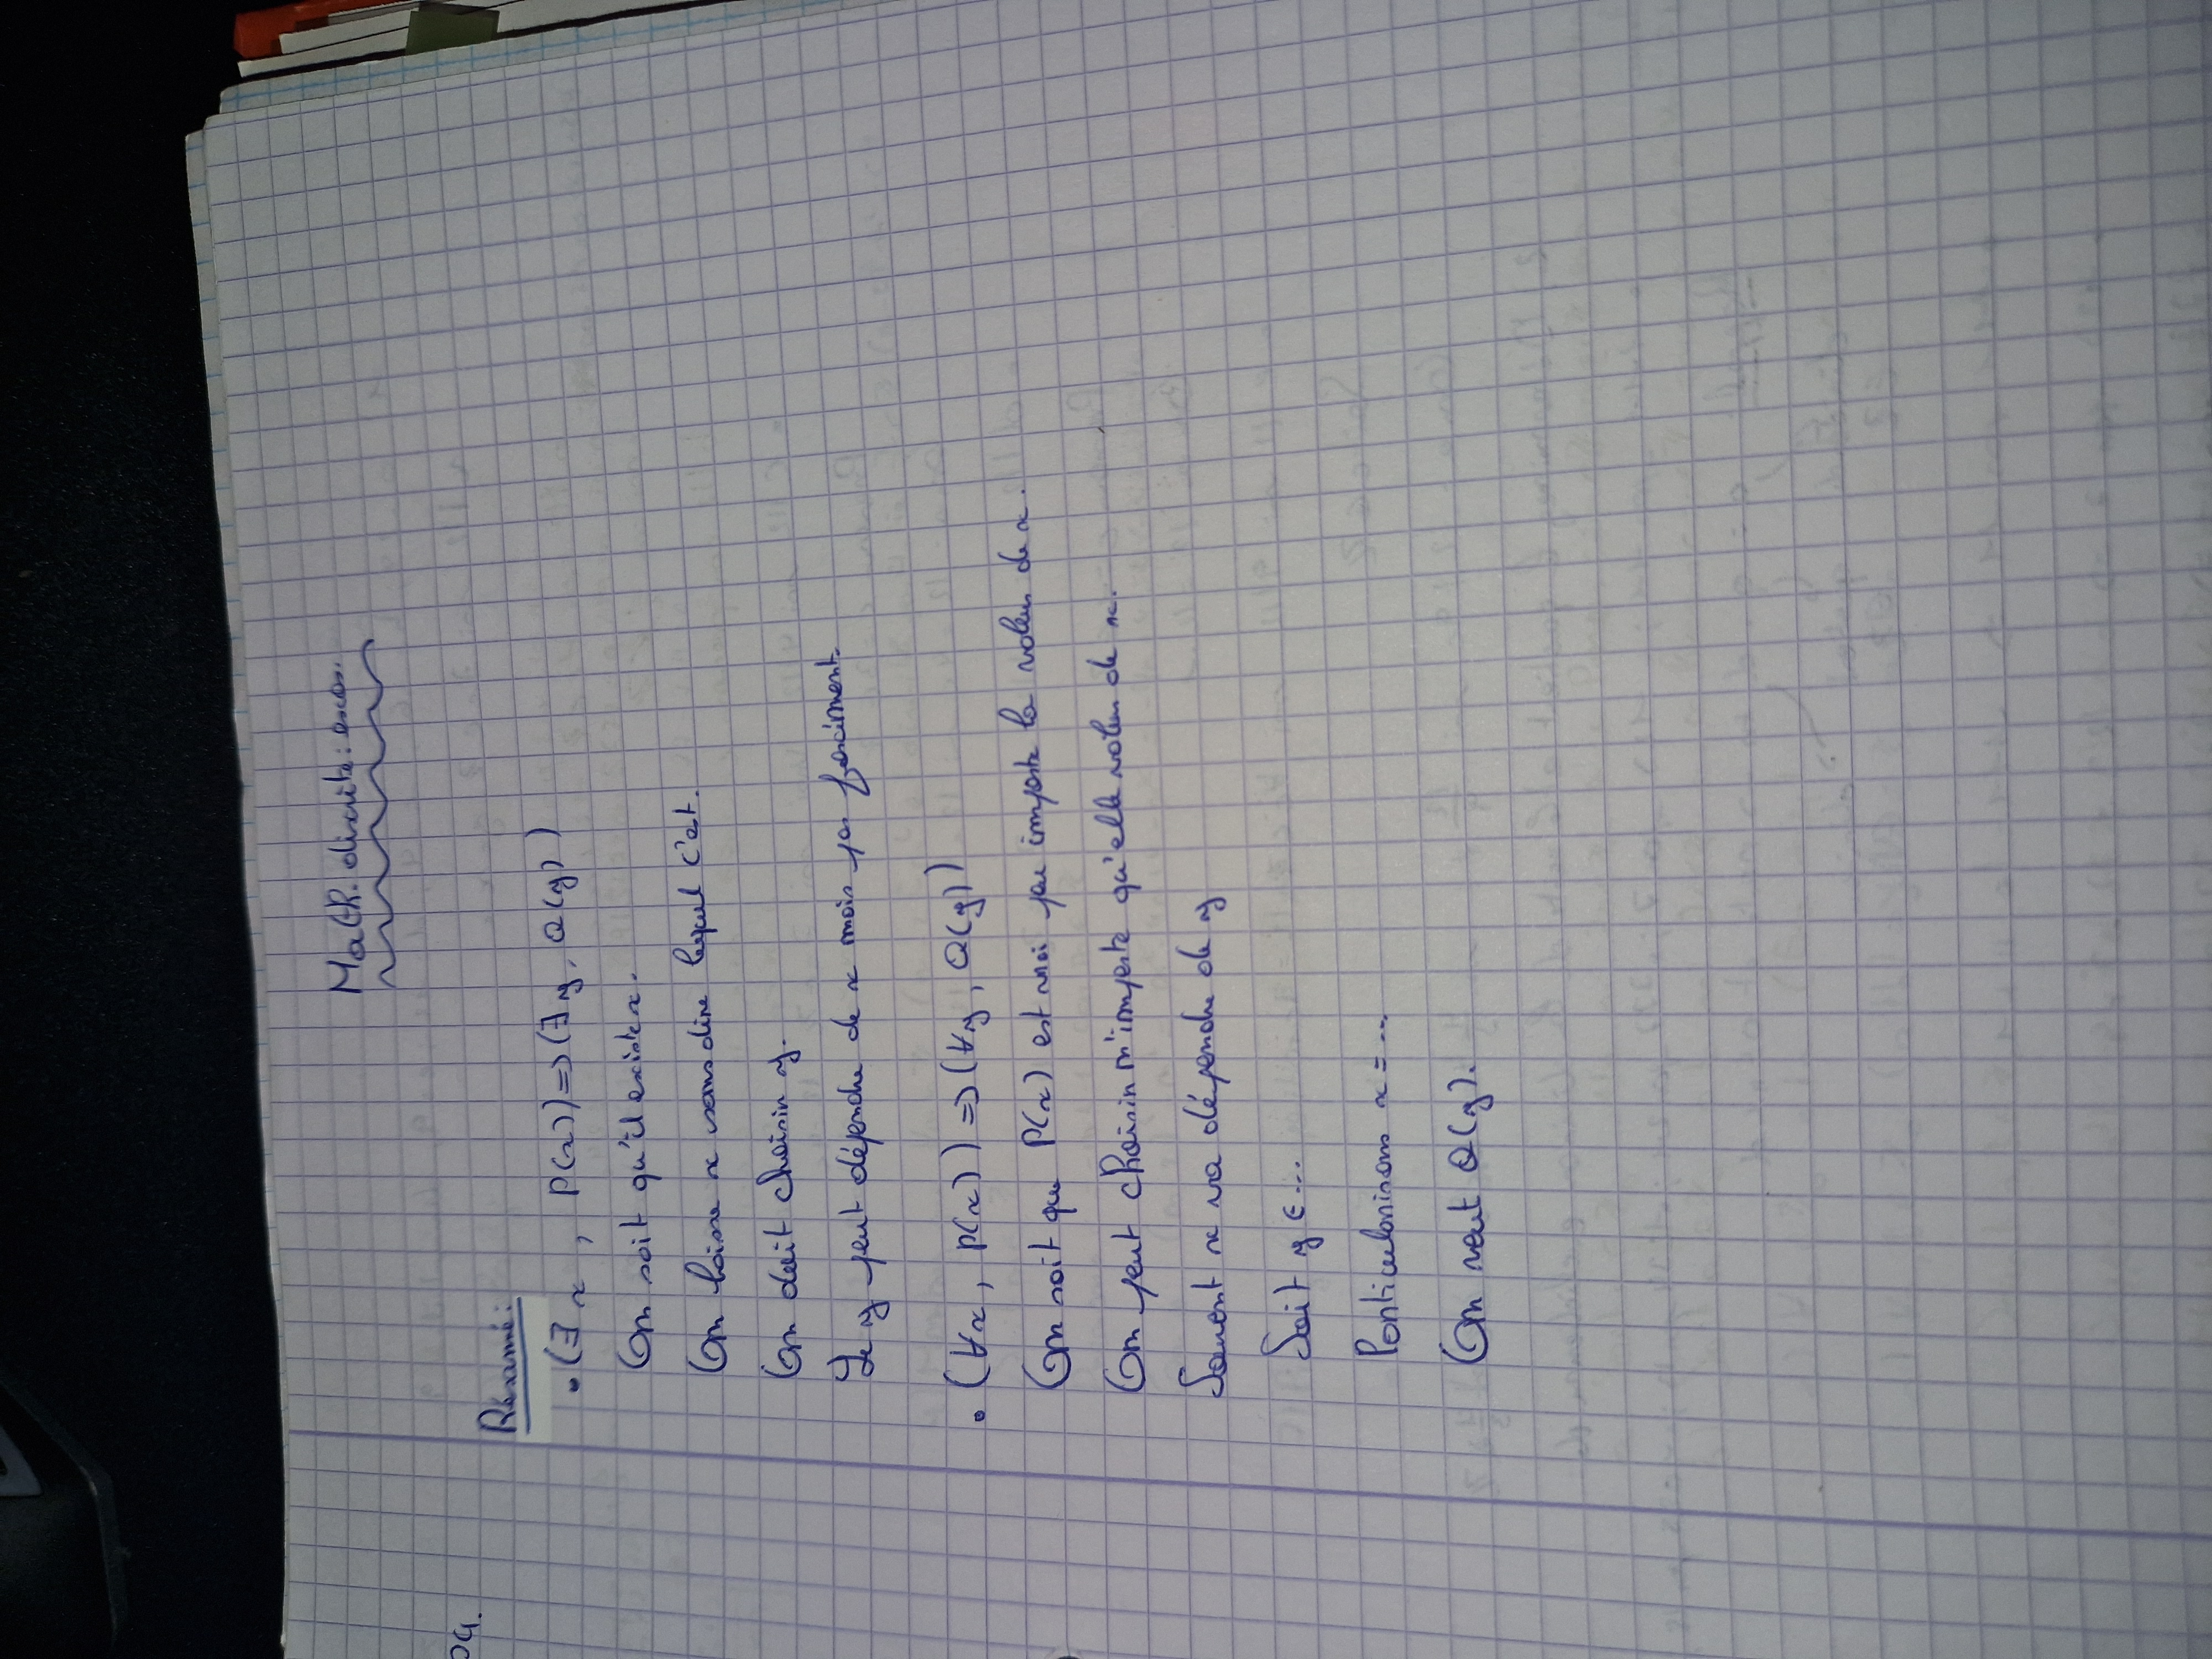 Math. discrète: exos.
Résumé:
• (∃x , P(x)) => (∃y, Q(y))
On sait qu'il existe x.
On laisse x sans dire lequel c'est.
On doit choisir y.
Le y peut dépendre de x mais pas forcément.
• (∀x, P(x)) => (∀y, Q(y))
On sait que P(x) est vrai peu importe la valeur de x.
On peut choisir n'importe qu'elle valeur de x.
Souvent x va dépendre de y
Soit y ∈ ...
Particularisons x = ...
On veut Q(y).